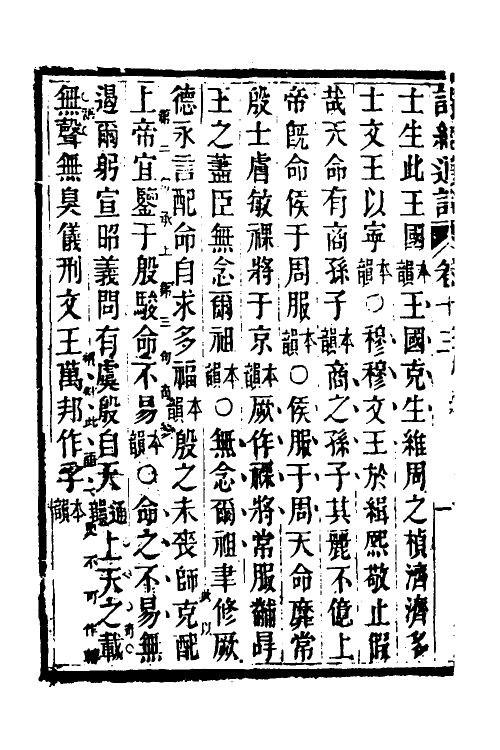 詩經通論 卷十三 一
士生此王國本韻王國克生維周之楨濟濟多
士文王以寧本韻○穆穆文王於緝熙敬止假
哉天命有商孫子本韻商之孫子其麗不億上
帝既命侯于周服本韻○侯服于周天命靡常
殷士膚敏祼將于京本韻厥作祼將常服黼冔
王之藎臣無念爾祖本韻○無念爾祖聿修厥
德永言配命自求多福本韻殷之未喪師克配
上帝宜鑒于殷駿命不易本韻○命之不易無
遏爾躬宣昭義問有虞殷自天通韻上天之載
無聲無臭儀刑文王萬邦作孚本韻